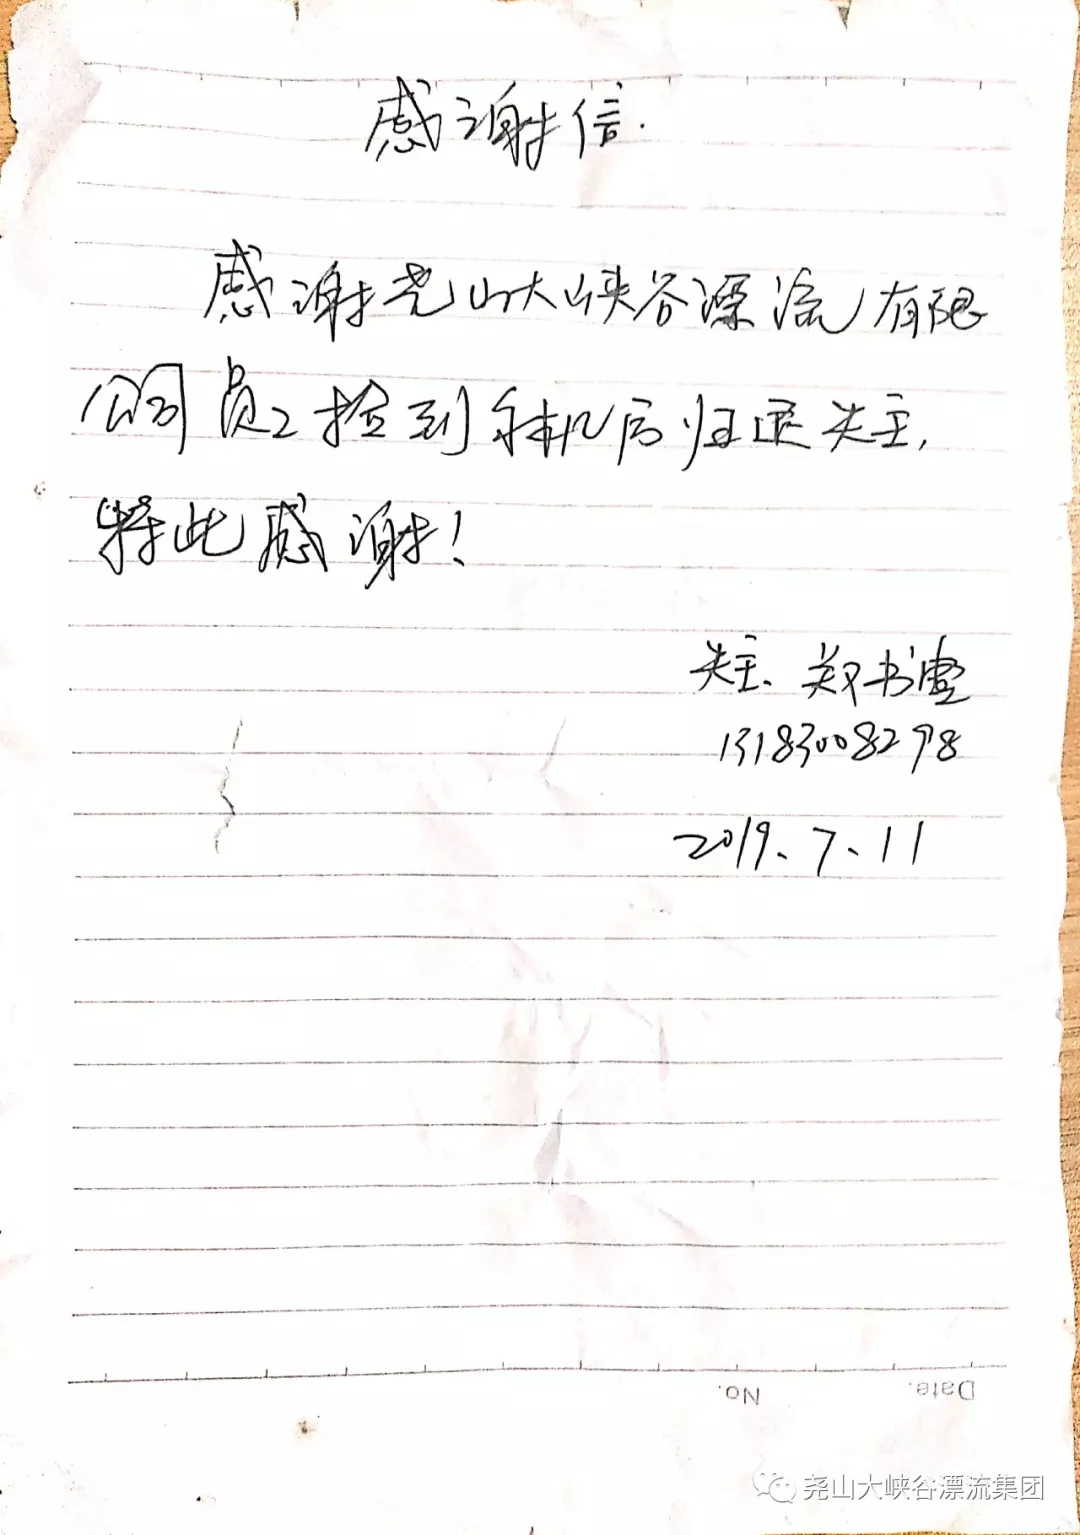 感谢信.
感谢尧山大峡谷漂流有限
公司员工捡到手机后归还失主,
特此感谢!
失主、郑书
13183008298
2019、7、11
No.
Date.
尧山大峡谷漂流集团